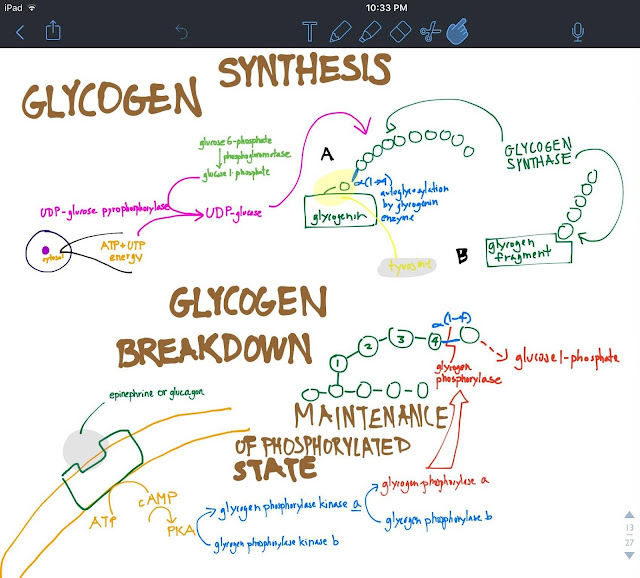 iPad
10:33 PM
T
GLYCOGEN SYNTHESIS
glucose 6-phosphate
phosphoglucomutase
glucose 1-phosphate
UDP-glucose pyrophosphorylase
UDP-glucose
cytosol
ATP + UTP
energy
A
α(1→4)
autoglycosylation
by glycogenin
enzyme
glycogenin
tyrosine
GLYCOGEN
SYNTHASE
B
glycogen
fragment
GLYCOGEN
BREAKDOWN
1
2
3
4
α(1-4)
glucose 1-phosphate
glycogen
phosphorylase
MAINTENANCE
OF PHOSPHORYLATED
STATE
epinephrine or glucagon
ATP
cAMP
PKA
glycogen phosphorylase kinase a
glycogen phosphorylase kinase b
glycogen phosphorylase a
glycogen phosphorylase b
13
27